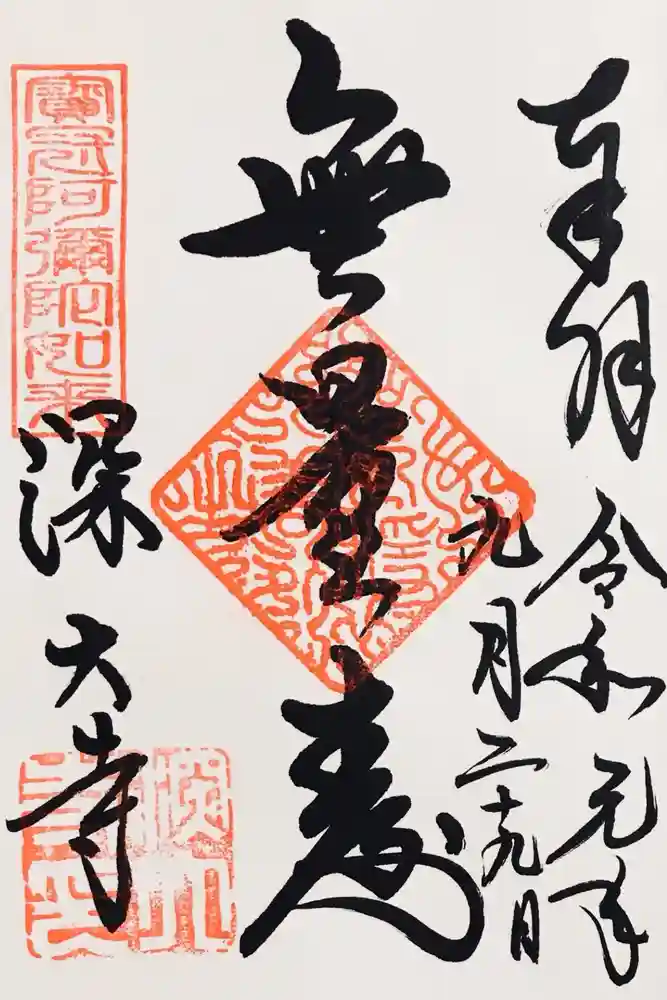 奉拝
令和元年
九月二十九日
無量壽
寶冠阿彌陀如来
深大寺